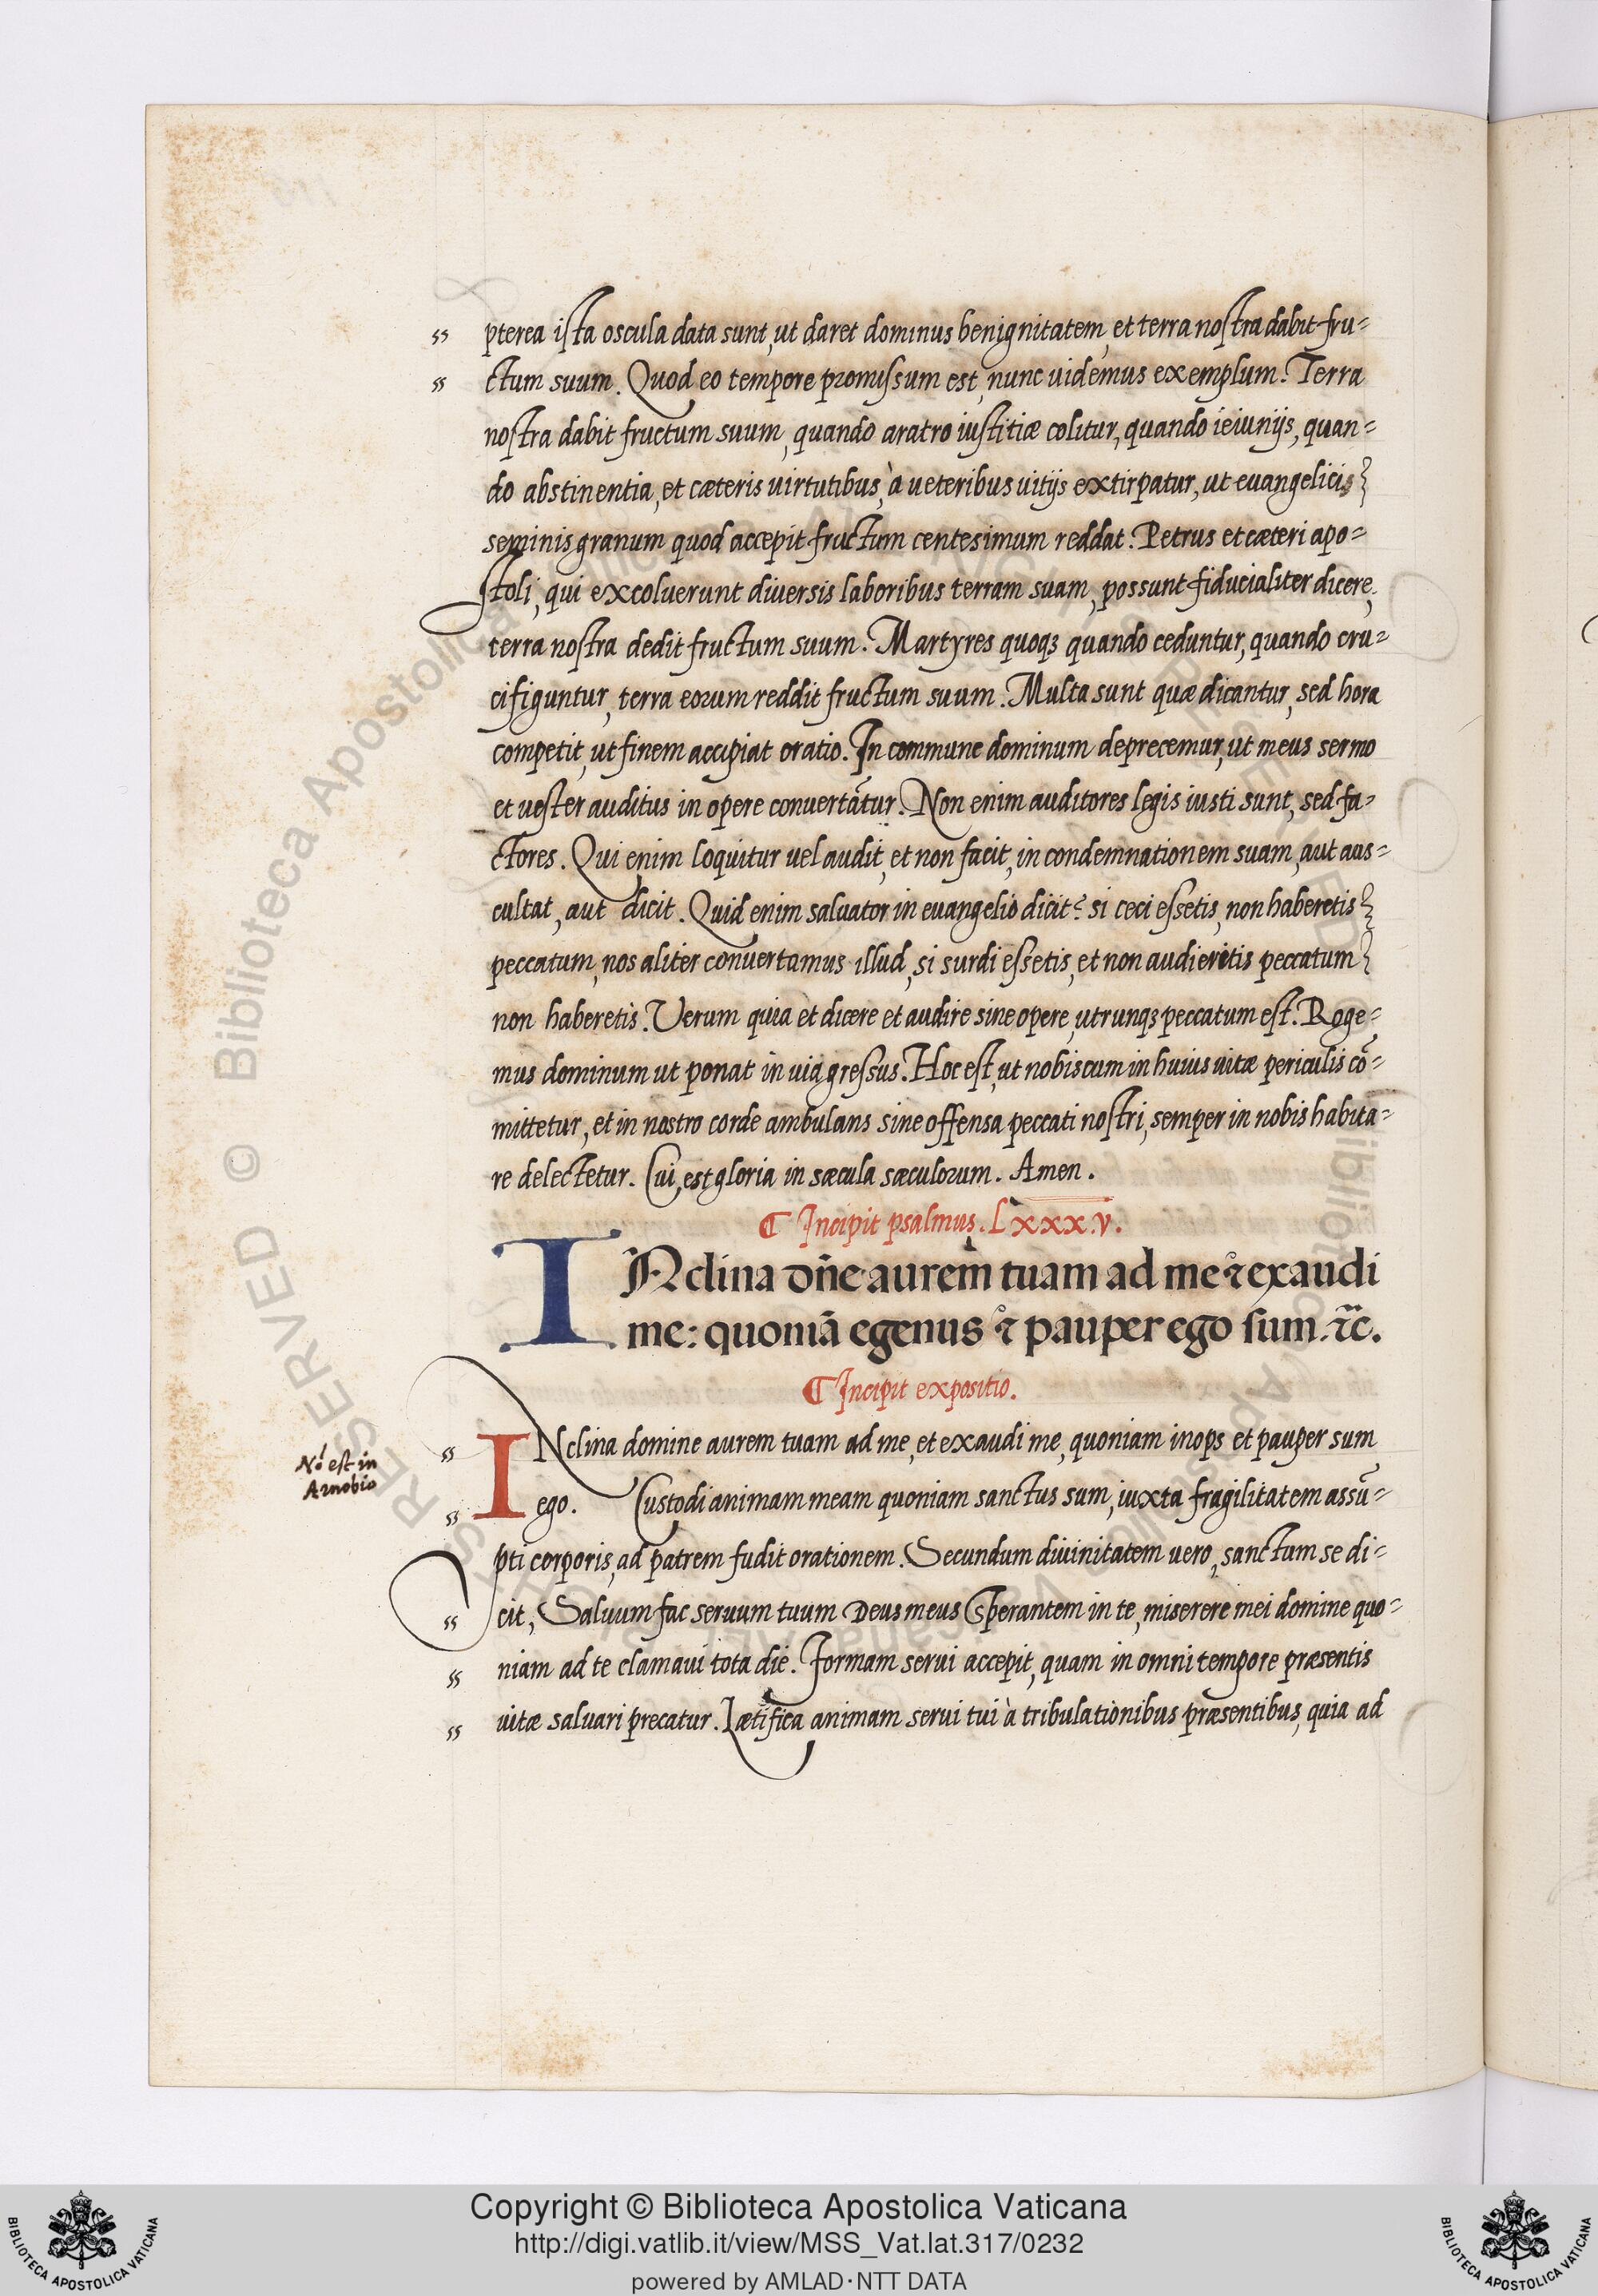 pterea ista oscula data sunt, ut daret dominus benignitatem, et terra nostra dabit fru=
ctum suum. Quod eo tempore promissum est, nunc uidemus exemplum. Terra
nostra dabit fructum suum, quando aratro iustitiæ colitur, quando ieiunijs, quan=
do abstinentia, et cæteris uirtutibus, à ueteribus uitijs extirpatur, ut euangelicis
seminis granum quod accepit fructum centesimum reddat. Petrus et cæteri apo=
stoli, qui excoluerunt diuersis laboribus terram suam, possunt fiducialiter dicere,
terra nostra dedit fructum suum. Martyres quoqꝫ quando ceduntur, quando cru=
cifiguntur, terra eorum reddit fructum suum. Multa sunt quæ dicantur, sed hora
competit, ut finem accipiat oratio. In commune dominum deprecemur, ut meus sermo
et uester auditus in opere conuertãtur. Non enim auditores legis iusti sunt, sed fa=
ctores. Qui enim loquitur uel audit, et non facit, in condemnationem suam, aut aus=
cultat, aut dicit. Quid enim saluator in euangelio dicit? si ceci essetis, non haberetis
peccatum, nos aliter conuertamus illud, si surdi essetis, et non audieritis peccatum
non haberetis. Uerum quia et dicere et audire sine opere, utrunqꝫ peccatum est. Roge=
mus dominum ut ponat in uia gressus. Hoc est, ut nobiscum in huius uitæ periculis cõ=
mittetur, et in nostro corde ambulans sine offensa peccati nostri, semper in nobis habita=
re delectetur. Cui est gloria in sæcula sæculorum. Amen.
¶ Incipit psalmus. Lxxx.v.
INclina dñe aurem tuam ad me ⁊ exaudi
me: quoniã egenus ⁊ pauper ego sum. ⁊c̃.
¶ Incipit expositio.
INclina domine aurem tuam ad me, et exaudi me, quoniam inops et pauper sum
ego. Custodi animam meam quoniam sanctus sum, iuxta fragilitatem assũ=
pti corporis, ad patrem fudit orationem. Secundum diuinitatem uero, sanctum se di=
cit, Saluum fac seruum tuum Deus meus Sperantem in te, miserere mei domine quo=
niam ad te clamaui tota die. Formam serui accepit, quam in omni tempore præsentis
uitæ saluari precatur. Lætifica animam serui tui à tribulationibus præsentibus, quia ad
Nõ est in
Arnobio
Copyright © Biblioteca Apostolica Vaticana
http://digi.vatlib.it/view/MSS_Vat.lat.317/0232
powered by AMLAD·NTT DATA
BIBLIOTECA APOSTOLICA VATICANA
BIBLIOTECA APOSTOLICA VATICANA